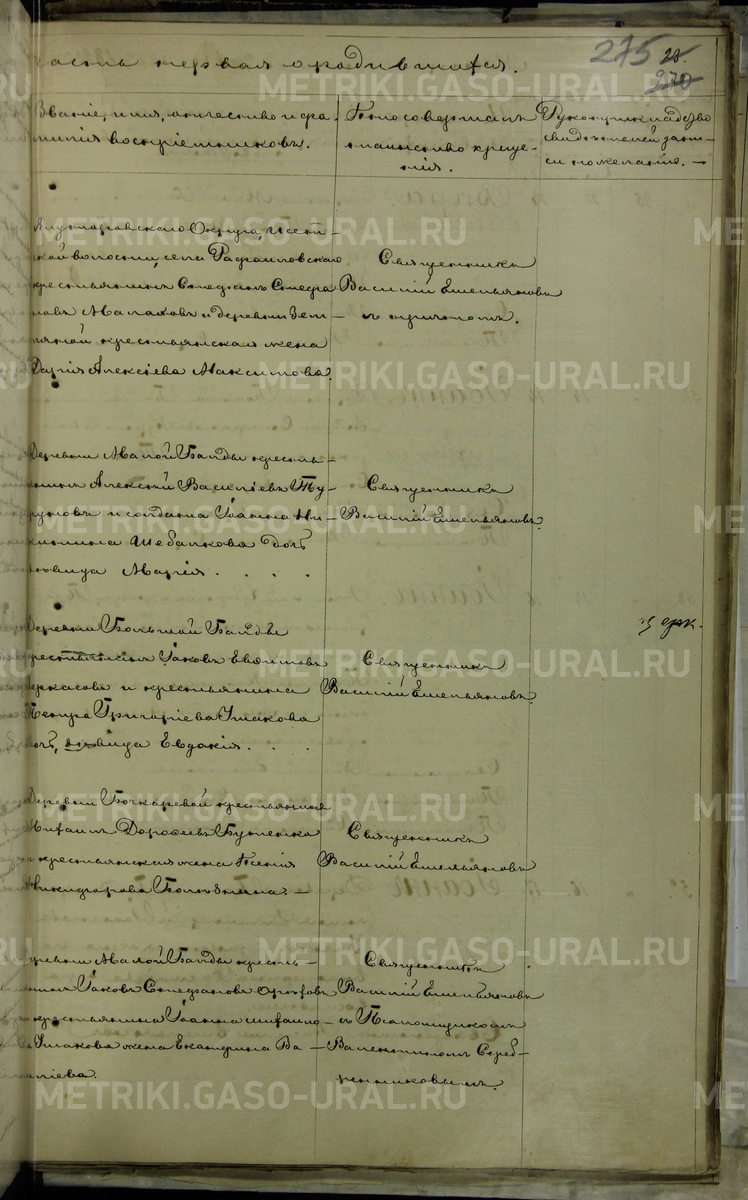 часть первая о родившихся.
275 28.
270
Званіе, имя, отчество и фа-
милія воспріемниковъ.
Кто совершалъ
таинство креще-
нія.
Рукоприкладство
свидѣтелей запи-
си по желанію. —
Ялуторовскаго Округа, Исет-
ской волости, села Рафаиловскаго
крестьянинъ Стефанъ Стефа
новъ Малаховъ и деревни
крестьянская жена
Дарія Алексіева Максимова.
Священникъ
Василій Емельяновъ
съ причтомъ.
Деревни Малой Байды крестья-
нинъ Алексій Василіевъ
и солдата Іоанна Ни-
китина Шебалкова дочь
дѣвица Марія. . . .
Священникъ
Василій Емельяновъ.
Деревни Большой Байды
крестьянинъ Іаковъ Евфимовъ
Черкасовъ и крестьянина
Петра Григоріева Ушакова
дочь, дѣвица Евдокія. . .
Священникъ
Василій Емельяновъ.
Деревни Бочкаревой крестьянинъ
Михаилъ Дорофеевъ
и крестьянская жена Ксенія
Никифорова —
Священникъ
Василій Емельяновъ
Деревни Малой Байды крестья-
нинъ Іаковъ Стефановъ
и крестьянина Іоанна Михаило-
ва Ушакова жена Екатерина Ва-
силіева.
Священникъ
Василій Емельяновъ
съ Псаломщикомъ
Валентиномъ Сереб-
ренниковымъ.
METRIKI.GASO-URAL.RU